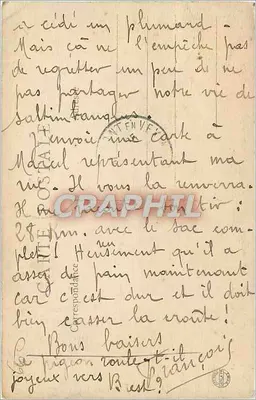 a cédé un plumard -
Mais cà ne l'empêche pas
de regretter un peu de ne
pas partager notre vie de
saltimbanques.
J'envoie une carte à
Marcel représentant ma
rue. Il vous la renverra.
Il
28 km. avec le sac com-
plet! Heureusement qu'il a
assez de pain maintenant
car c'est dur et il doit
bien casser la croûte!
Bons baisers
Le pigeon roule-t-il
joyeux vers Brest?
François
CARTE POSTALE
Correspondance
CPAPHIL